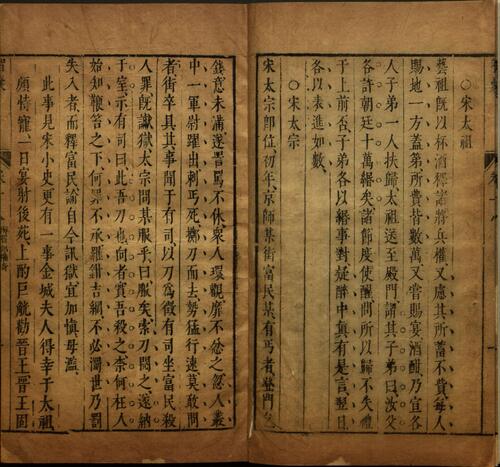 ○宋太祖
藝祖既以杯酒釋諸將兵權又慮其所蓄不貲每人
賜地一方蓋第所費皆數萬又嘗賜宴酒酣乃宣各
人子弟一人扶歸太祖送至殿門謂其子弟曰汝父
各許朝廷十萬緡矣諸節度使醒問所以歸不失禮
于上前否子弟各以緡事對疑醉中真有是言翌日
各以表進如數
○宋太宗
宋太宗即位初年京師某街富民某有丐者登門乞
錢意未滿遂詈罵不休衆人環觀靡不忿之忽人叢
中一軍尉躍出刺丐死擲刀而去勢猛行速莫敢問
者街卒具其事聞于有司以刀為徵有司坐富民殺
人罪既讞獄太宗問某服乎曰服矣索刀閱之遂納
于室示有司曰此吾刀也向者實吾殺之奈何枉人
始知鞭笞之下何罪不承羅鉗吉網不必濁世乃罰
失入者而釋富民諭自今訊獄宜加慎毋濫
此事見宋小史更有一事金城夫人得幸于太祖
頗恃寵一日宴射後苑上酌巨觥勸晉王晉王固